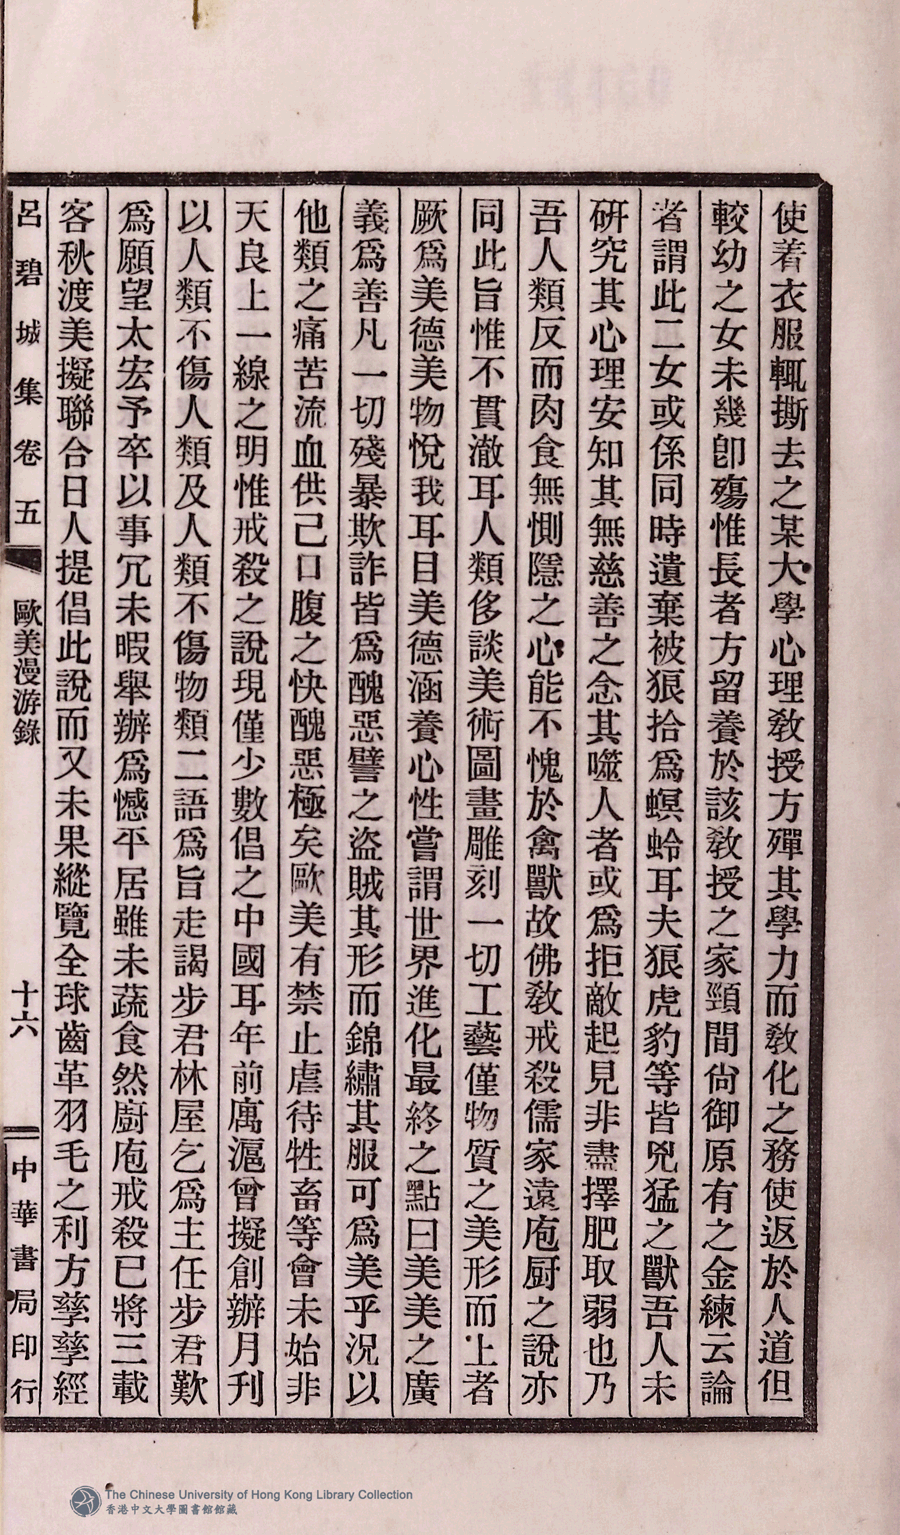 使着衣服輒撕去之某大學心理敎授方殫其學力而敎化之務使返於人道但
較幼之女未幾卽殤惟長者方留養於該敎授之家頸間尙御原有之金練云論
者謂此二女或係同時遺棄被狼拾爲螟蛉耳夫狼虎豹等皆兇猛之獸吾人未
硏究其心理安知其無慈善之念其噬人者或爲拒敵起見非盡擇肥取弱也乃
吾人類反而肉食無惻隱之心能不愧於禽獸故佛敎戒殺儒家遠庖厨之說亦
同此旨惟不貫澈耳人類侈談美術圖畫雕刻一切工藝僅物質之美形而上者
厥爲美德美物悅我耳目美德涵養心性嘗謂世界進化最終之點曰美美之廣
義爲善凡一切殘暴欺詐皆爲醜惡譬之盜賊其形而錦繡其服可爲美乎況以
他類之痛苦流血供己口腹之快醜惡極矣歐美有禁止虐待牲畜等會未始非
天良上一線之明惟戒殺之說現僅少數倡之中國耳年前厲滬曾擬創辦月刊
以人類不傷人類及人類不傷物類二語爲旨走謁步君林屋乞爲主任步君歎
爲願望太宏予卒以事冗未暇舉辦爲憾平居雖未蔬食然廚庖戒殺已將三載
客秋渡美擬聯合日人提倡此說而又未果縱覽全球齒革羽毛之利方孳孳經
呂碧城集卷五
歐美漫游錄
十六
中華書局印行
The Chinese University of Hong Kong Library Collection
香港中文大學圖書館館藏